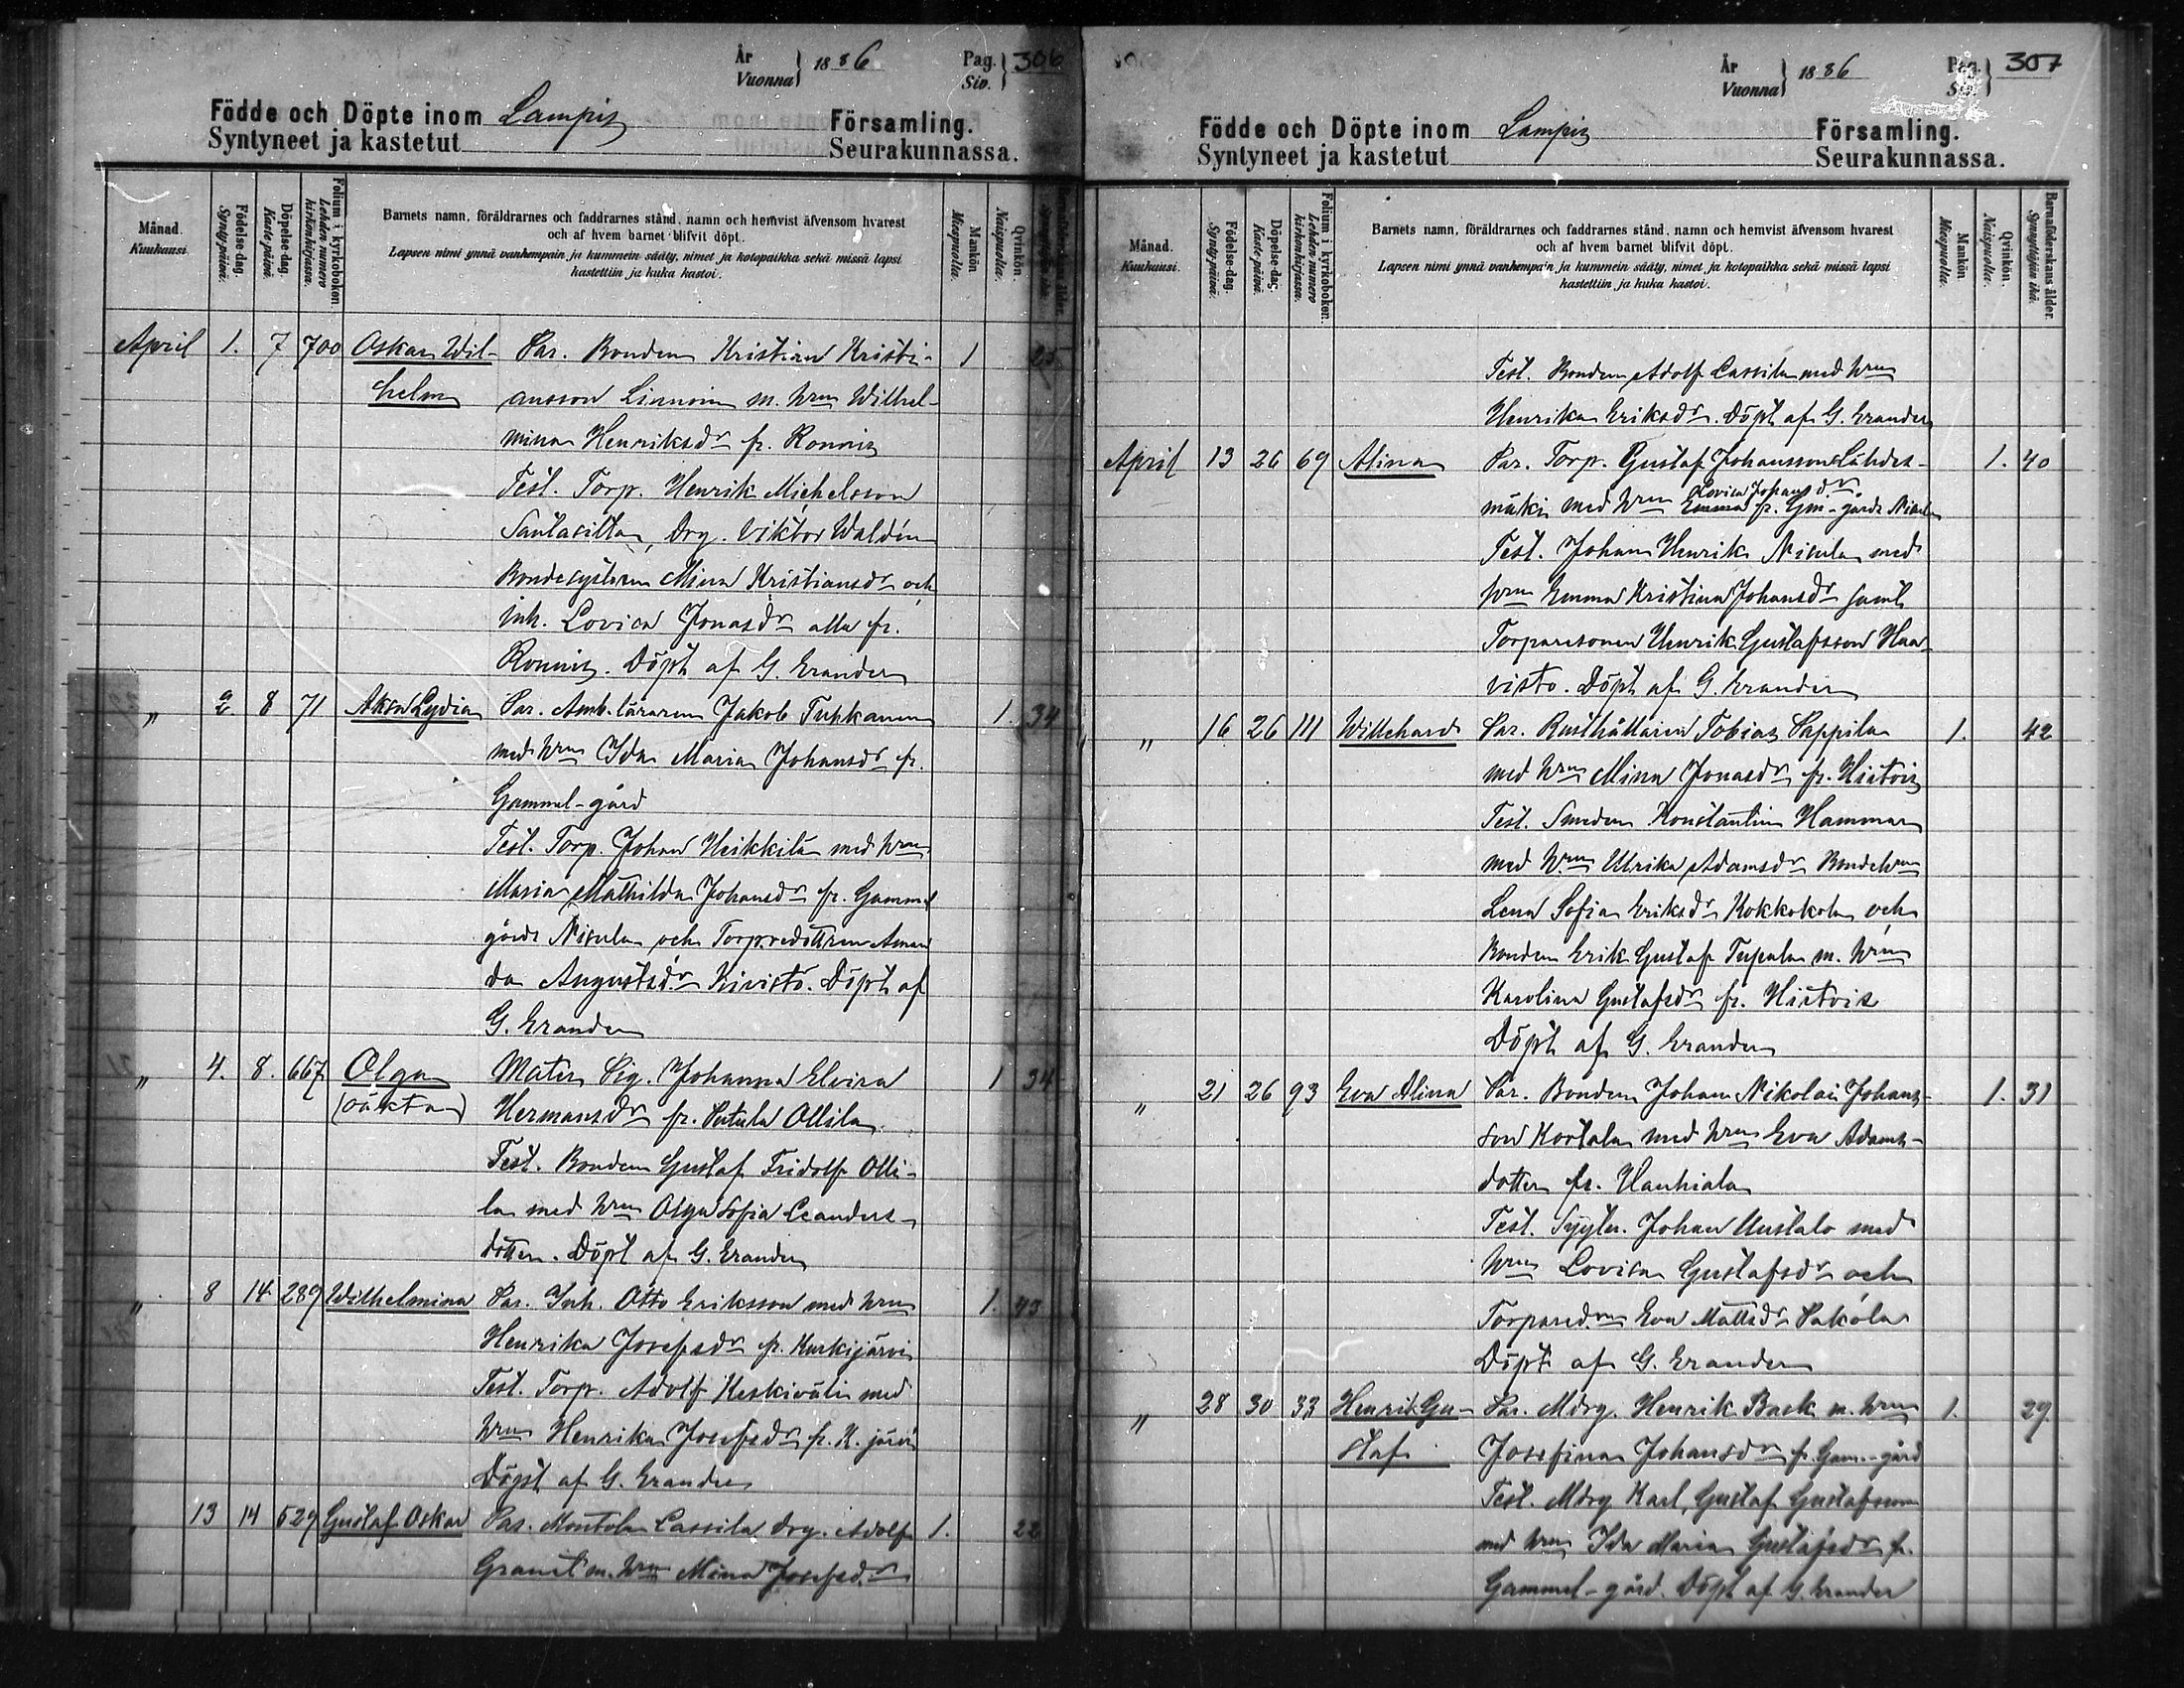 År
Vuonna } 1886 Pag.
Siv. } 306
Födde och Döpte inom Lampis Församling.
Syntyneet ja kastetut Seurakunnassa.
Månad.
Kuukausi.
Födelse-dag.
Synty-päivä.
Döpelse-dag.
Kaste-päivä.
Folium i kyrkoboken.
Lehden numero kirkonkirjassa.
Barnets namn, föräldrarnes och faddrarnes stånd, namn och hemvist äfvensom hvarest
och af hvem barnet blifvit döpt.
Lapsen nimi ynnä vanhempain ja kummein sääty, nimet ja kotopaikka sekä missä lapsi
kastettiin ja kuka kastoi.
Mankön
Miespuolia.
Qvinkön.
Naispuolia.
April 1. 7 700 Oskar Wil- Par. Bonden Kristian Kristi- 1 25
helm ansson Linnoin m. hrn Wilhel-
mina Henriksdr fr. Ronnis
Test. Torp. Henrik Michelsson
Santasilta, Drg. Viktor Waldén
Bondesystern Mina Kristiansdr och
Inh. Lovisa Jonasdr alla fr.
Ronnis. Döpt af G. Erander
" 2 8 71 Aksa Lydia Par. Amb. läraren Jakob Tuhkanen 1. 34
med hrn Ida Maria Johansdr fr.
Gammel-gård
Test. Torp. Johan Heikkilä med hrn
Maria Mathilda Johansdr fr. Gammel
gårds Nisula och Torpredottren Aman
da Augustsdr Kivistö. Döpt af
G. Erander
" 4. 8. 667 Olga Mater Pig. Johanna Elvira 1 34
(oäkta) Hermansdr fr. Putula Ollila
Test. Bonden Gustaf Fridolf Olli-
la med hrn Olga Sofia Leanders-
dotter. Döpt af G. Erander
" 8 14 289 Wilhelmina Par. Inh. Otto Eriksson med hrn 1. 43
Henrika Josefsdr fr. Kurkijärvi
Test. Torp. Adolf Keskiväli med
hrn Henrika Josefsdr fr. K. järvi
Döpt af G. Erander
" 13 14 529 Gustaf Oskar Par. Montola Lassila drg. Adolf 1. 22
Granit m. hrn Mina Josefsdr
År
Vuonna } 1886 Pag.
Siv. } 307
Födde och Döpte inom Lampis Församling.
Syntyneet ja kastetut Seurakunnassa.
Månad.
Kuukausi.
Födelse-dag.
Synty-päivä.
Döpelse-dag.
Kaste-päivä.
Folium i kyrkoboken.
Lehden numero kirkonkirjassa.
Barnets namn, föräldrarnes och faddrarnes stånd, namn och hemvist äfvensom hvarest
och af hvem barnet blifvit döpt.
Lapsen nimi ynnä vanhempain ja kummein sääty, nimet ja kotopaikka sekä missä lapsi
kastettiin ja kuka kastoi.
Mankön
Miespuolia.
Qvinkön.
Naispuolia.
Barnaföderskans ålder.
Synnyttäjän ikä.
Test. Bonden Adolf Lassila med hrn
Henrika Eriksdr. Döpt af G. Erander
April 13 26 69 Alina Par. Torp. Gustaf Johansson Lähdes- 1. 40
Lovisa Johansdr.
mäki med hrn Emma fr. Gm-gårds Nisula
Test. Johan Henrik Nisula med
hrn Emma Kristina Johansdr samt
Torparesonen Henrik Gustafsson Haa-
visto. Döpt af G. Erander
" 16 26 111 Willehard Par. Rusthållaren Tobias Pappila 1. 42
med hrn Mina Jonasdr fr. Hietois
Test. Smeden Konstantin Hammar
med hrn Ulrika Adamsdr Bondehrn
Lena Sofia Eriksdr Kokkokola och
Bonden Erik Gustaf Tupala m. hrn
Karolina Gustafsdr fr. Hietois
Döpt af G. Erander
" 21 26 93 Eva Alina Par. Bonden Johan Nikolai Johans- 1. 31
son Kortala med hrn Eva Adams-
dotter fr. Hauhiala
Test. Sytln. Johan Uustalo med
hrn Lovisa Gustafsdr och
Torparedrn Eva Mattsdr Pakola
Döpt af G. Erander
" 28 30 33 Henrik Gu- Par. Mdrg. Henrik Back m. hrn 1. 29
staf Josefina Johansdr fr. Gam.-gård
Test. Mdrg Karl Gustaf Gustafsson
med hrn Ida Maria Gustafsdr fr.
Gammel-gård. Döpt af G. Erander